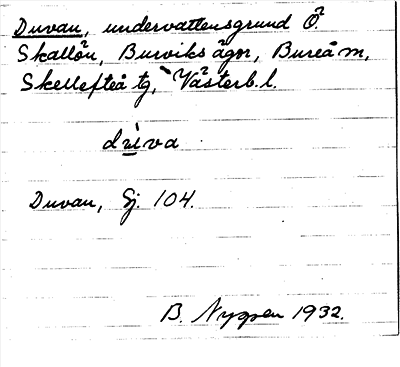 Duvan, undervattensgrund Ö
Skallön, Burviks ägor, Bureå m,
Skellefteå tg, Västerb. l.
Duvan, Sj. 104.
B. Nygren 1932.